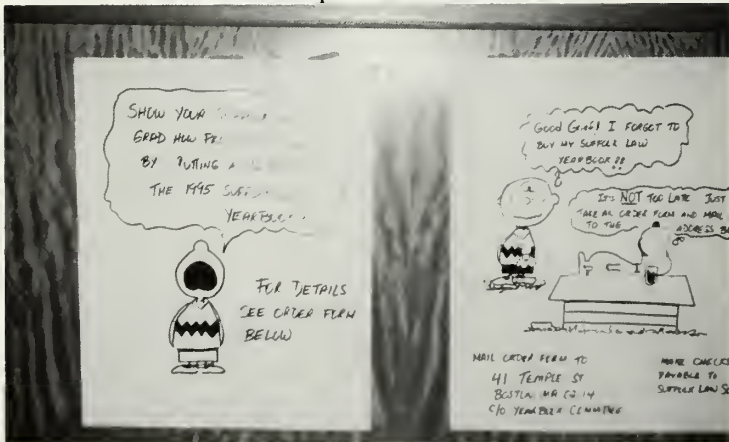 SHOW YOUR
GRAD HOW
BY PUTTING A
THE 1995
FOR DETAILS
SEE ORDER FORM
BELOW
GOOD GRIEF! I FORGOT TO
BUY MY SUFFOLK LAW
YEARBOOK!!
IT'S NOT TOO LATE JUST
TAKE AN ORDER FORM AND MAIL
TO THE ADDRESS
MAIL ORDER FORM TO
41 TEMPLE ST
BOSTON MA 02114
C/O YEARBOOK COMMITTEE
MAKE CHECKS
PAYABLE TO
SUFFOLK LAW